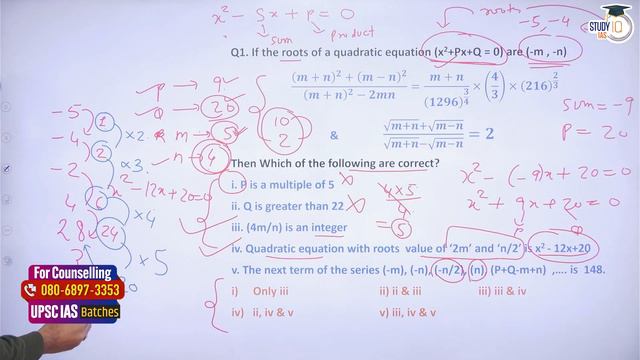 x² - Sx + p = 0
sum
product
roots
-5, -4
STUDY IQ
IAS
Q1. If the roots of a quadratic equation (x²+Px+Q = 0) are (-m , -n)
(m + n)² + (m − n)² / (m + n)² − 2mn = m + n / (1296)^(3/4) × (4/3) × (216)^(2/3)
& √m+n+√m−n / √m+n−√m−n = 2
p → 9
Q → 20
m → 5
n → 4
10
2
sum = -9
P = 20
-5
1
×2
-4
2
×3
-2
4
6
×4
28
24
×5
?
x² - 12x + 20 = 0
Then Which of the following are correct?
i. P is a multiple of 5
ii. Q is greater than 22
iii. (4m/n) is an integer
4×5 / 4
= 5
x² - (-9)x + 20 = 0
x² + 9x + 20 = 0
P
Q
iv. Quadratic equation with roots value of '2m' and 'n/2' is x² - 12x+20
v. The next term of the series (-m), (-n), (-n/2), (n) (P+Q-m+n) ,.... is 148.
i) Only iii
ii) ii & iii
iii) iii & iv
iv) ii, iv & v
v) iii, iv & v
For Counselling
080-6897-3353
UPSC IAS Batches